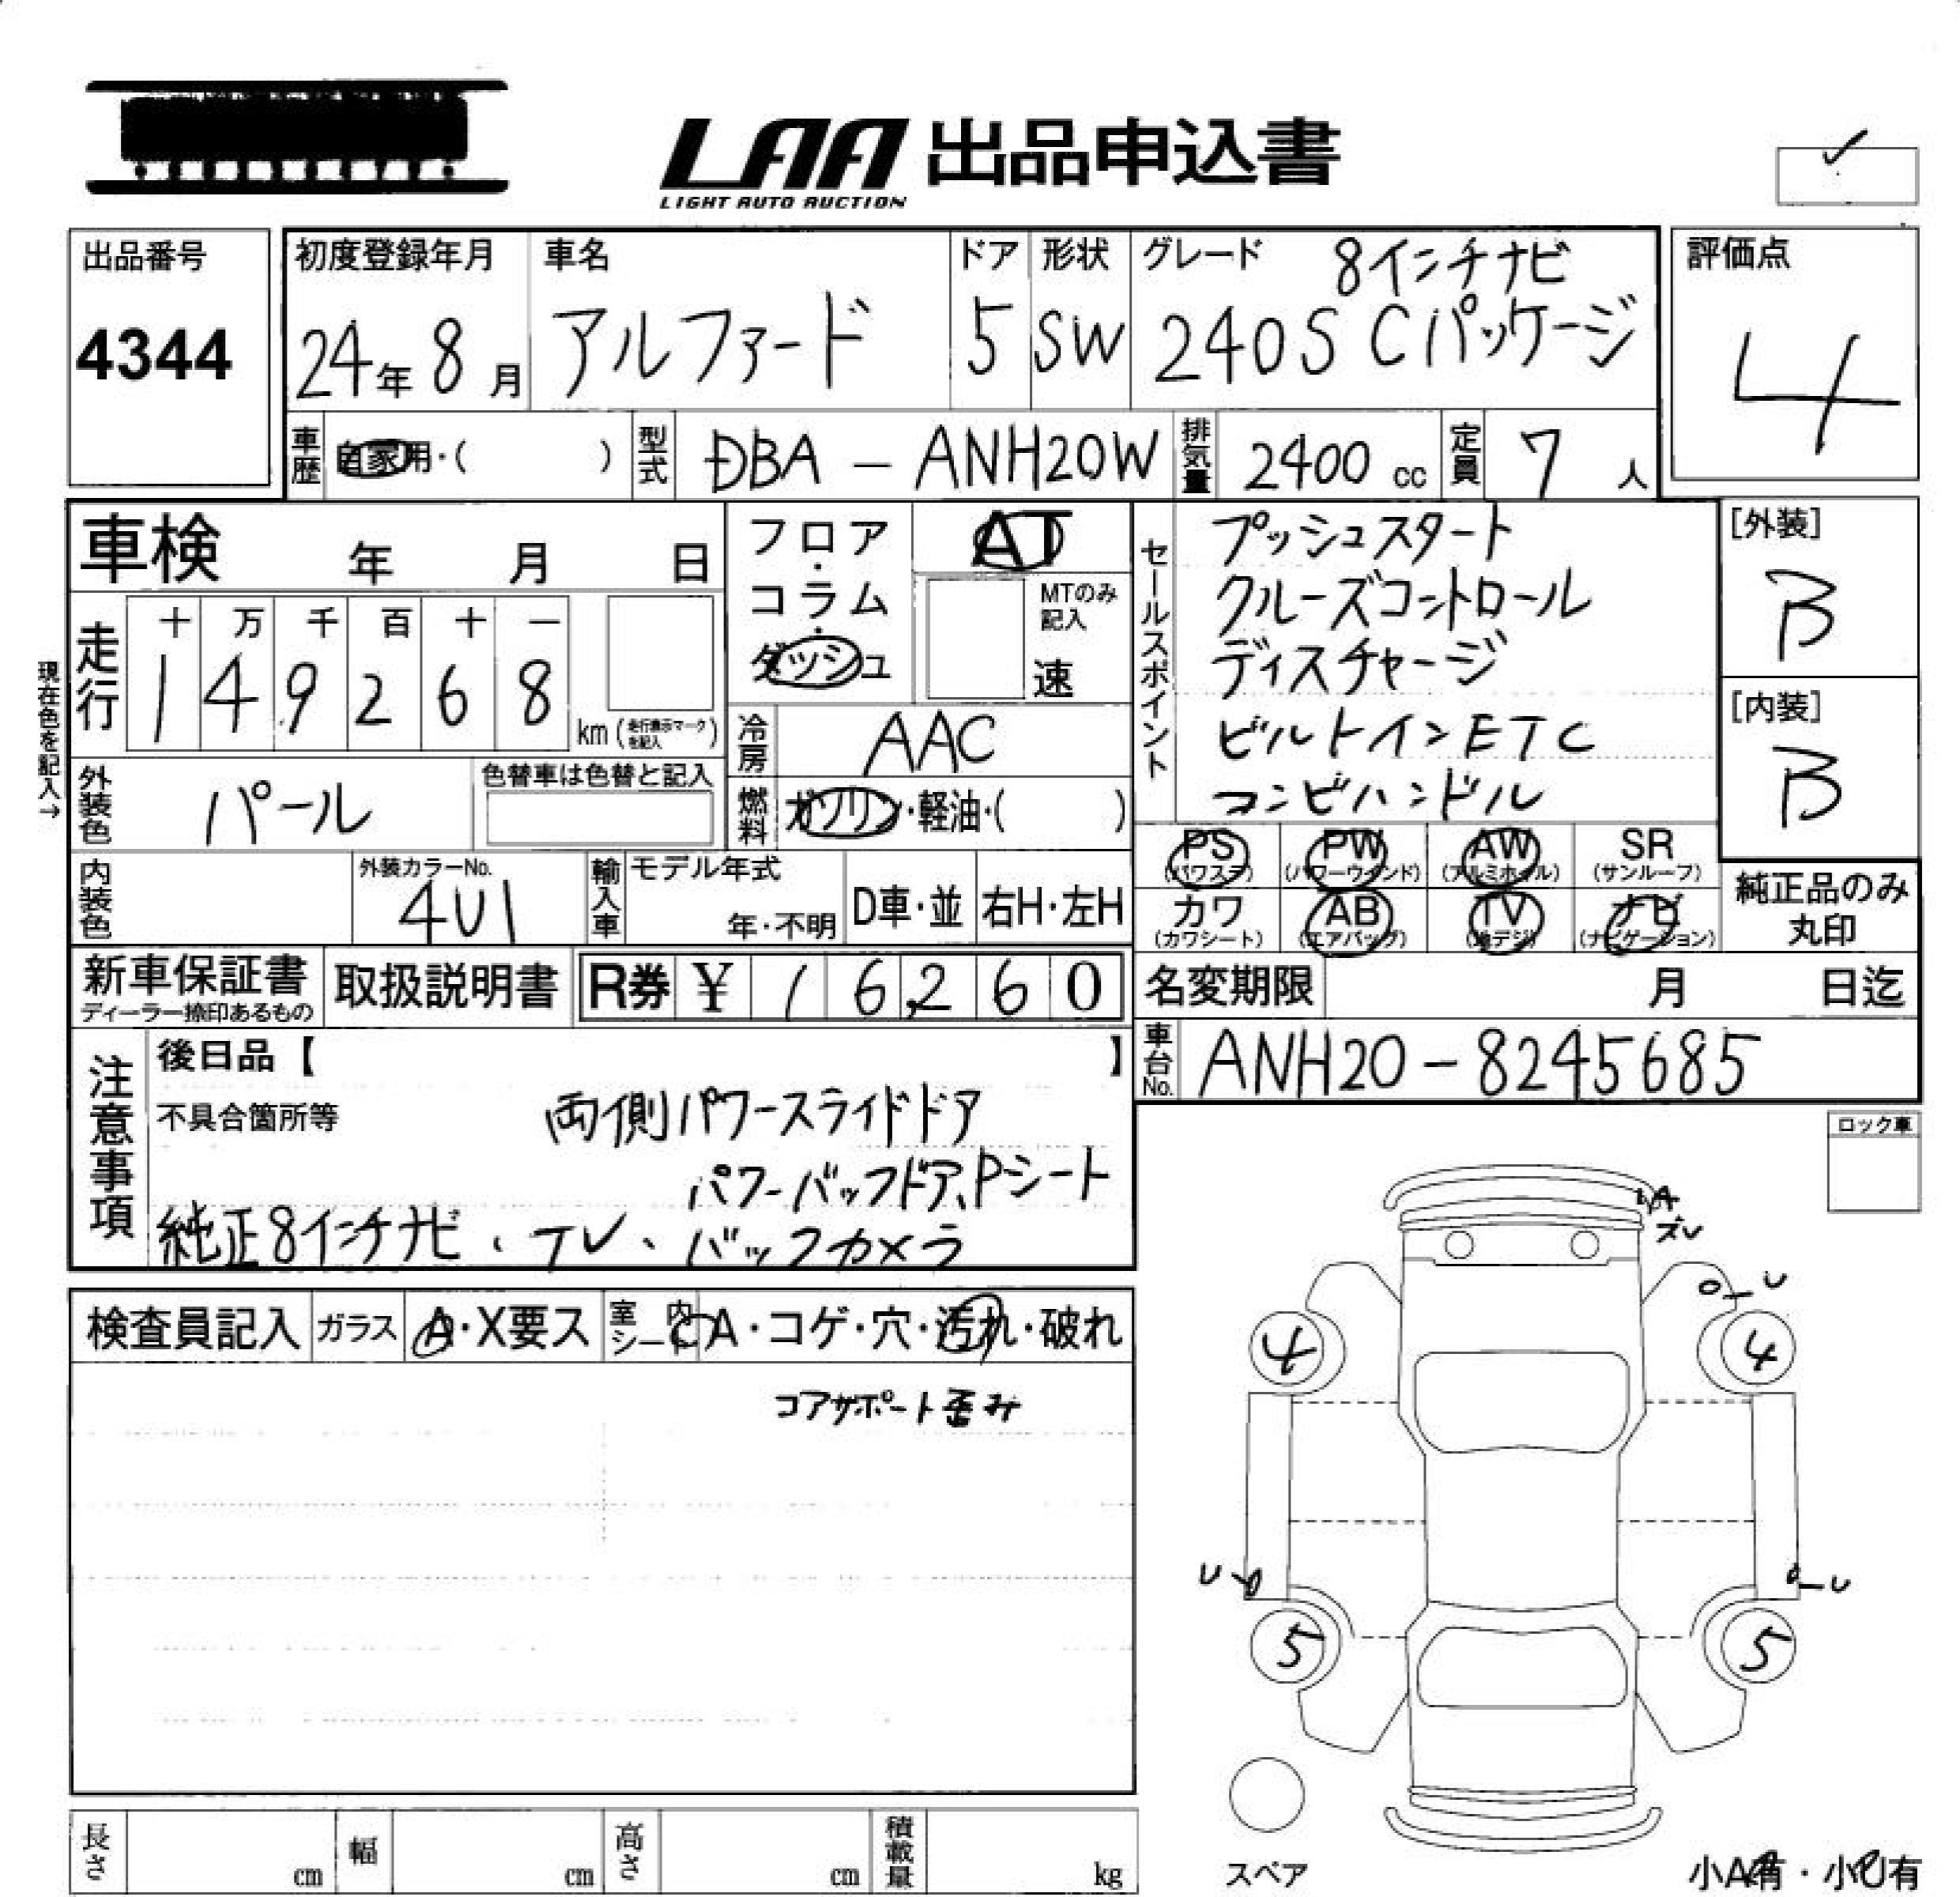 LAA 出品申込書
LIGHT AUTO AUCTION
出品番号
4344
初度登録年月
24年 8月
車名
アルファード
ドア
5
形状
SW
グレード 8インチナビ
240S Cパッケージ
評価点
4
車歴 自家用・( )
型式 DBA - ANH20W
排気量 2400 cc
定員 7 人
車検 年 月 日
走行
十 万 千 百 十 一
1 4 9 2 6 8
km(走行表示マークを記入)
現在色を記入→
外装色 パール
色替車は色替と記入
内装色
外装カラーNo.
4U1
輸入車
モデル年式
年・不明
D車・並
右H・左H
フロア・コラム・ダッシュ
AT
MTのみ記入
速
冷房 AAC
燃料 ガソリン・軽油・( )
セールスポイント
プッシュスタート
クルーズコントロール
ディスチャージ
ビルトインETC
コンビハンドル
PS (パワステ)
PW (パワーウインド)
AW (アルミホイル)
SR (サンルーフ)
カワ (カワシート)
AB (エアバッグ)
TV (地デジ)
ナビ (ナビゲーション)
[外装]
B
[内装]
B
純正品のみ
丸印
新車保証書
ディーラー捺印あるもの
取扱説明書
R券 ¥ 16,260
名変期限 月 日迄
車台No. ANH20-8245685
注意事項
後日品【 】
不具合箇所等
両側パワースライドドア
パワーバックドア、Pシート
純正8インチナビ、TV、バックカメラ
ロック車
検査員記入
ガラス A・X要ス
室内シート CA・コゲ・穴・汚れ・破れ
コアサポート歪み
A
ズレ
U
4
4
U
U
5
5
スペア
長さ cm
幅 cm
高さ cm
積載量 kg
小A有・小U有